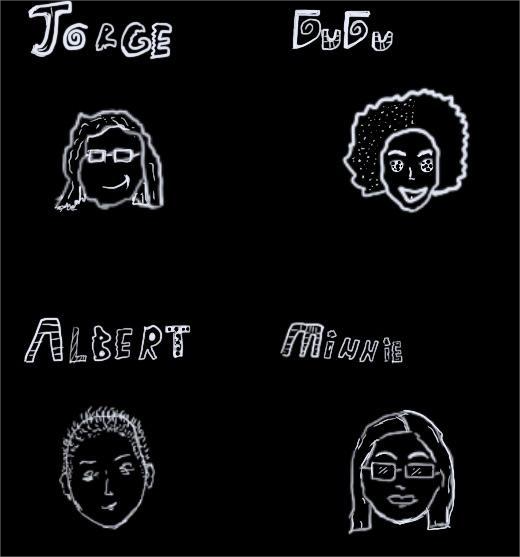 JORGE
ALBERT
MiNNiE